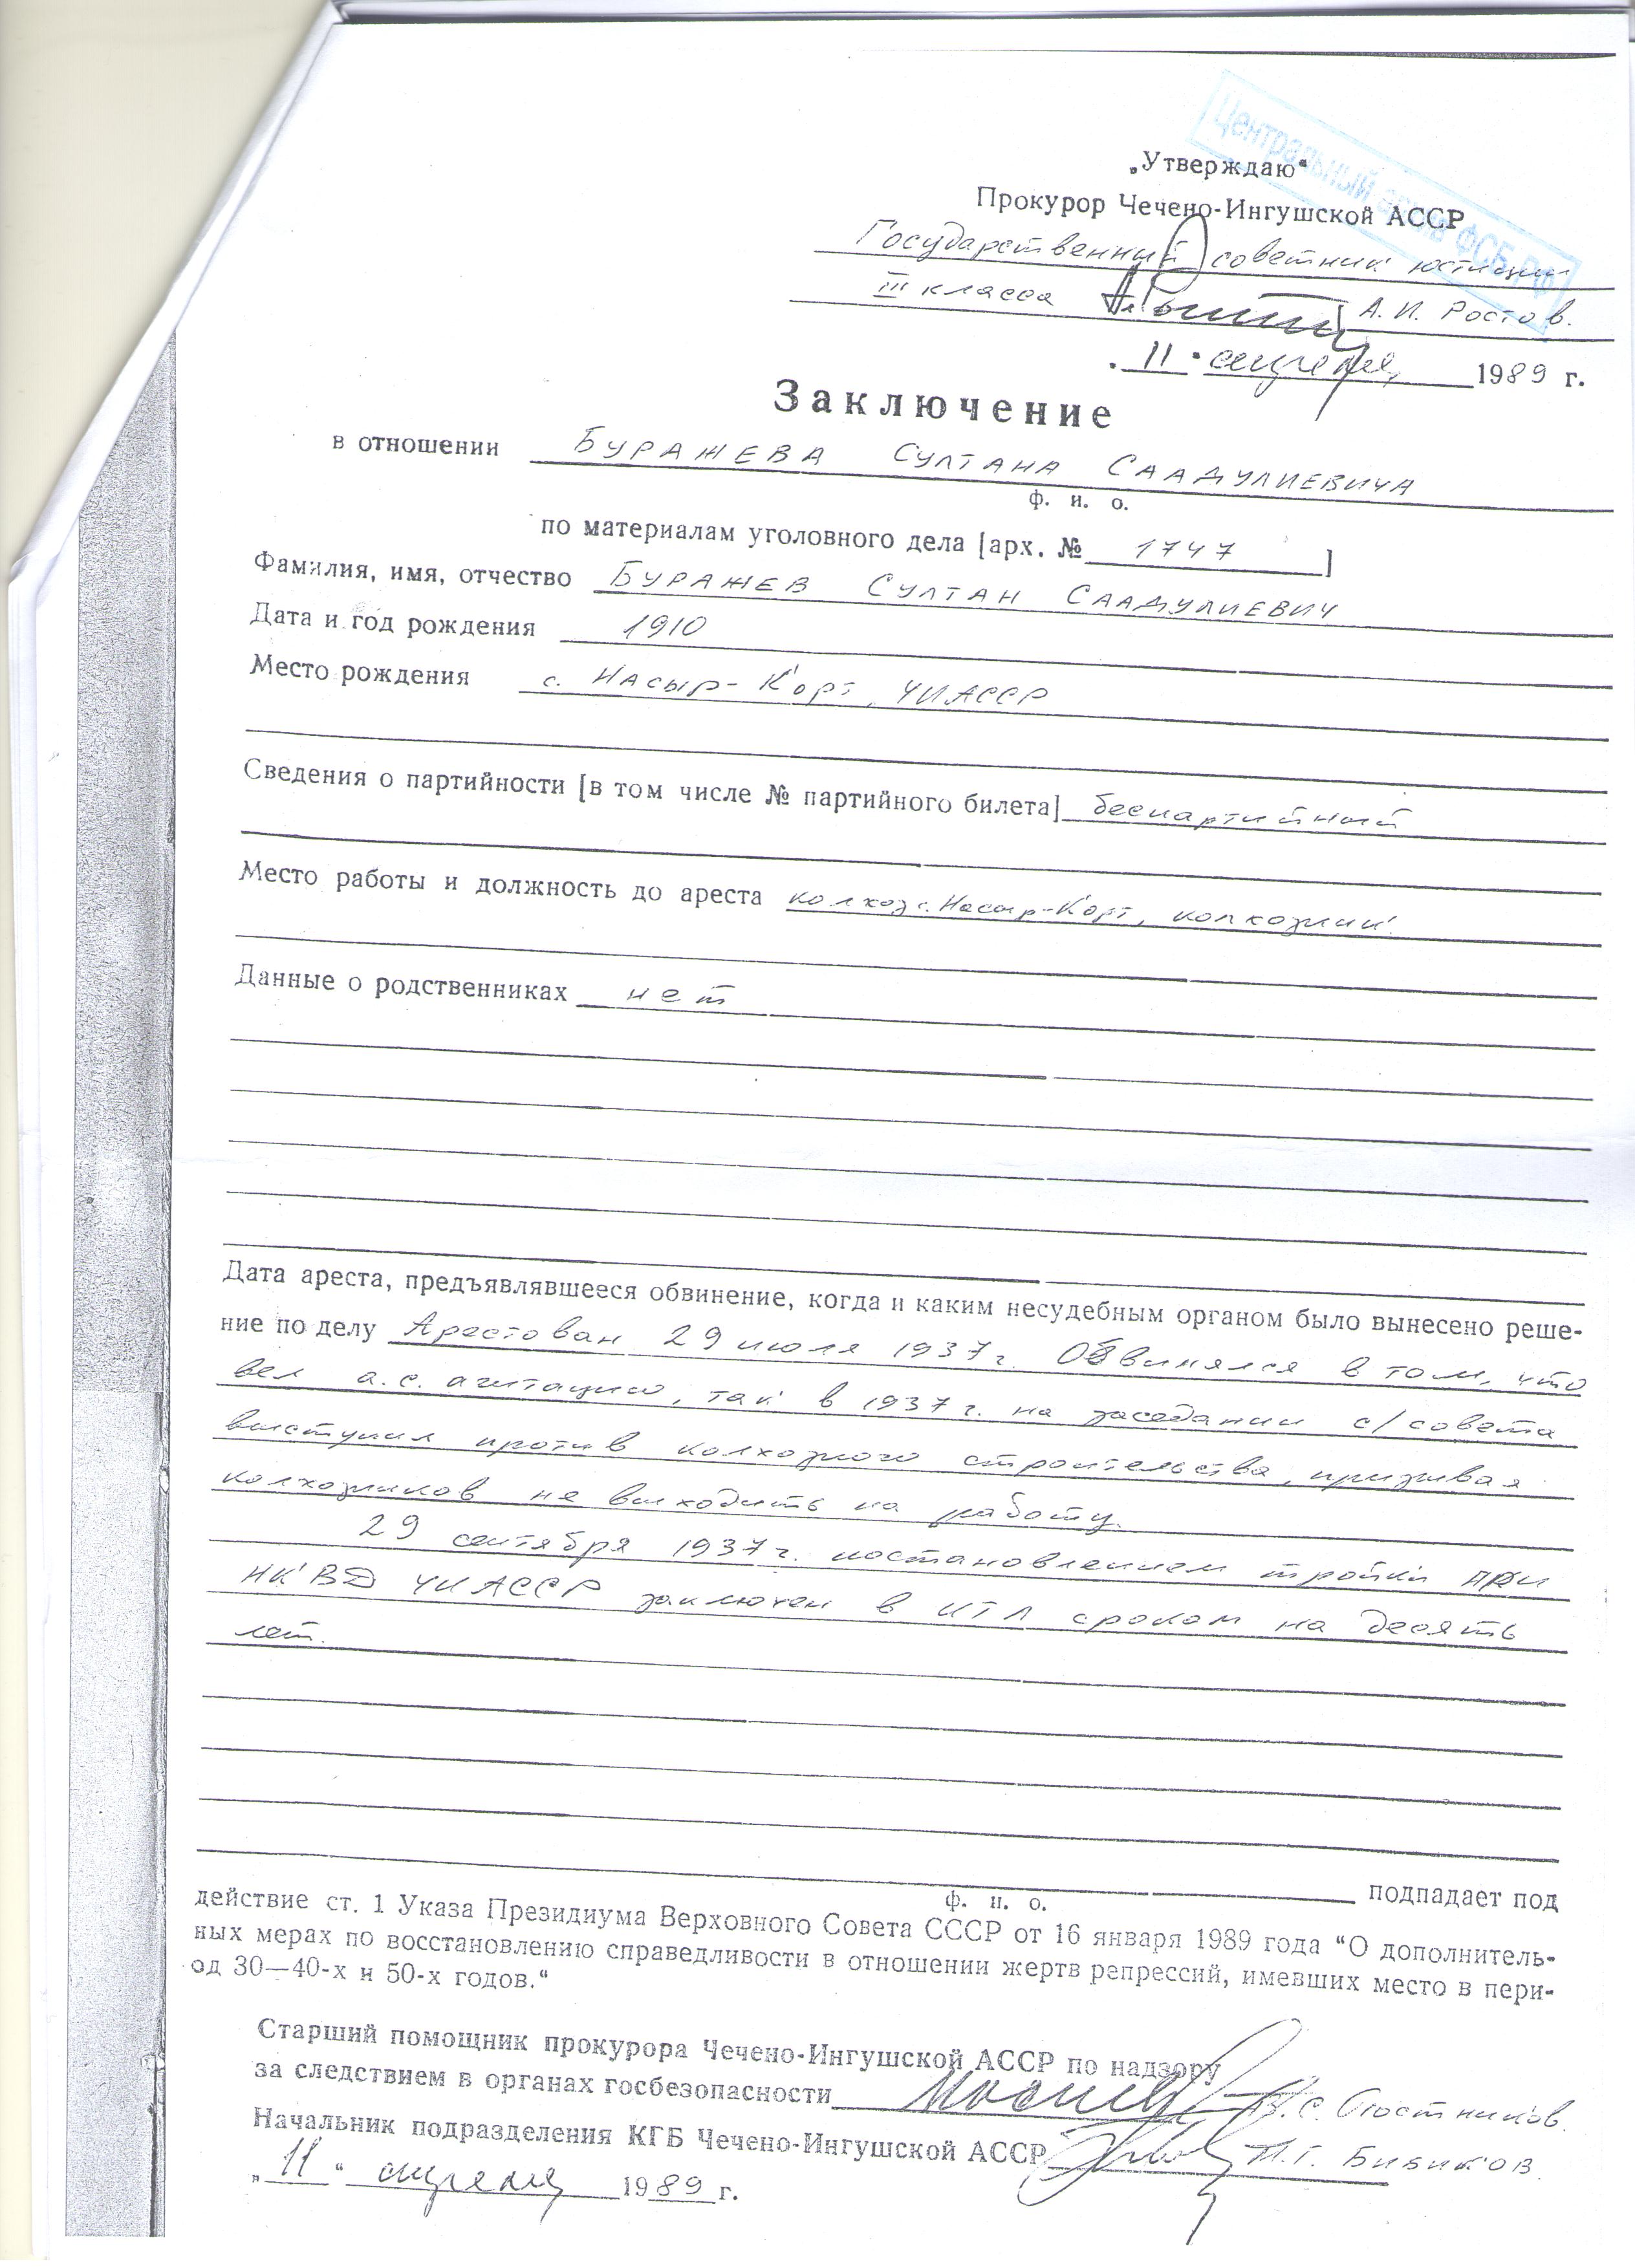 Центральный архив ФСБ РФ
„Утверждаю“
Прокурор Чечено-Ингушской АССР
Государственный советник юстиции
III класса А. И. Ростов.
„11“ апреля 1989 г.
Заключение
в отношении БУРАЖЕВА СУЛТАНА СААДУЛИЕВИЧА
ф. и. о.
по материалам уголовного дела [арх. № 1747 ]
Фамилия, имя, отчество БУРАЖЕВ СУЛТАН СААДУЛИЕВИЧ
Дата и год рождения 1910
Место рождения с. Насыр-Корт, ЧИАССР
Сведения о партийности [в том числе № партийного билета] беспартийный
Место работы и должность до ареста колхоз с. Насыр-Корт, колхозник.
Данные о родственниках нет
Дата ареста, предъявлявшееся обвинение, когда и каким несудебным органом было вынесено реше-
ние по делу Арестован 29 июля 1937 г. Обвинялся в том, что
вел а. с. агитацию, так в 1937 г. на заседании с/совета
выступил против колхозного строительства, призывая
колхозников не выходить на работу.
29 сентября 1937 г. постановлением тройки при
НКВД ЧИАССР заключен в ИТЛ сроком на десять
лет.
подпадает под
ф. и. о.
действие ст. 1 Указа Президиума Верховного Совета СССР от 16 января 1989 года “О дополнитель-
ных мерах по восстановлению справедливости в отношении жертв репрессий, имевших место в пери-
од 30—40-х и 50-х годов.“
Старший помощник прокурора Чечено-Ингушской АССР по надзору
за следствием в органах госбезопасности В. С. Постников.
Начальник подразделения КГБ Чечено-Ингушской АССР П. Г. Бибиков.
„11“ апреля 1989 г.